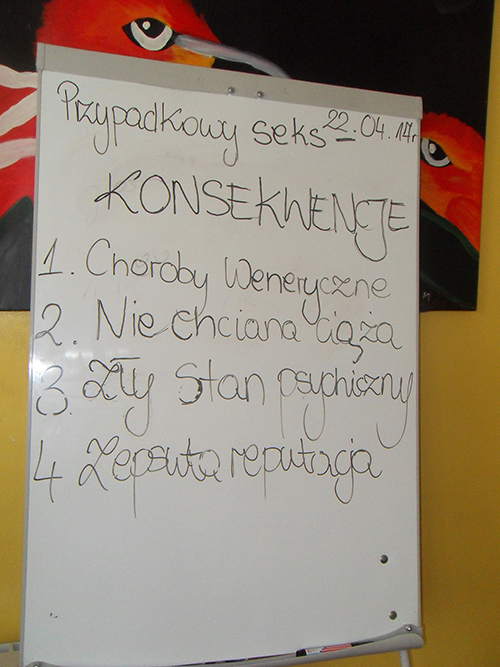 Przypadkowy seks 22.04.17r
KONSEKWENCJE
1. Choroby Weneryczne
2. Nie chciana ciąża
3. Zły Stan psychiczny
4 Zepsuta reputacja